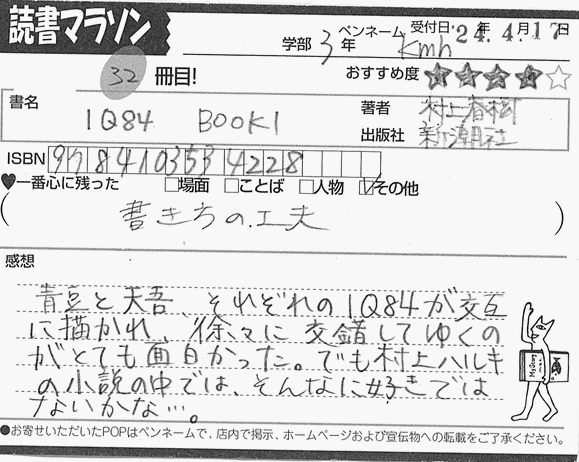 読書マラソン
学部 3年 ペンネーム kmh 受付日 '24年 4月17日
32冊目!
おすすめ度 ★★★★☆
書名 1Q84 BOOK1
著者 村上春樹
出版社 新潮社
ISBN 9784103534228
♥一番心に残った □場面 □ことば □人物 ☑その他
(書き方の工夫)
感想
青豆と天吾、それぞれの1Q84が交互
に描かれ、徐々に交錯してゆくの
がとても面白かった。でも村上ハルキ
の小説の中では、そんなに好きでは
ないかな…。
●お寄せいただいたPOPはペンネームで、店内で掲示、ホームページおよび宣伝物への転載をご了承ください。